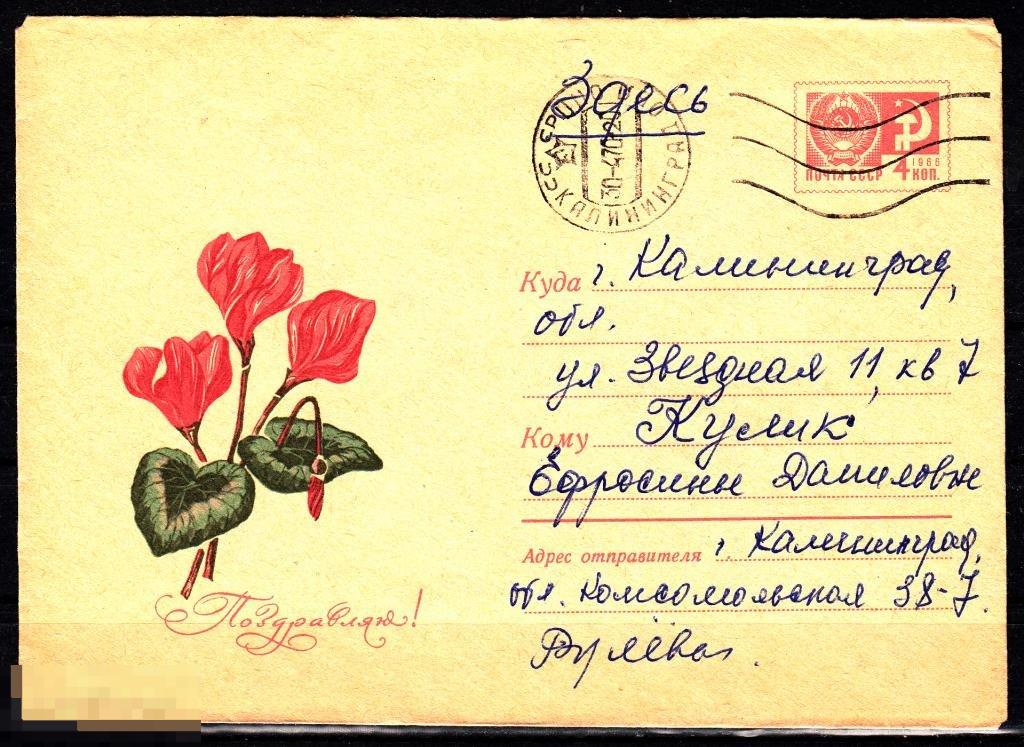 Здесь
КАЛИНИНГРАД
30-470-20
1966
ПОЧТА СССР 4 КОП.
Куда г. Калининград,
обл.
ул. Звездная 11, кв 7
Кому Кулик
Ефросиньи Даниловны
Адрес отправителя г. Калининград,
обл. Комсомольская 38-7.
Рулёва.
Поздравляю!